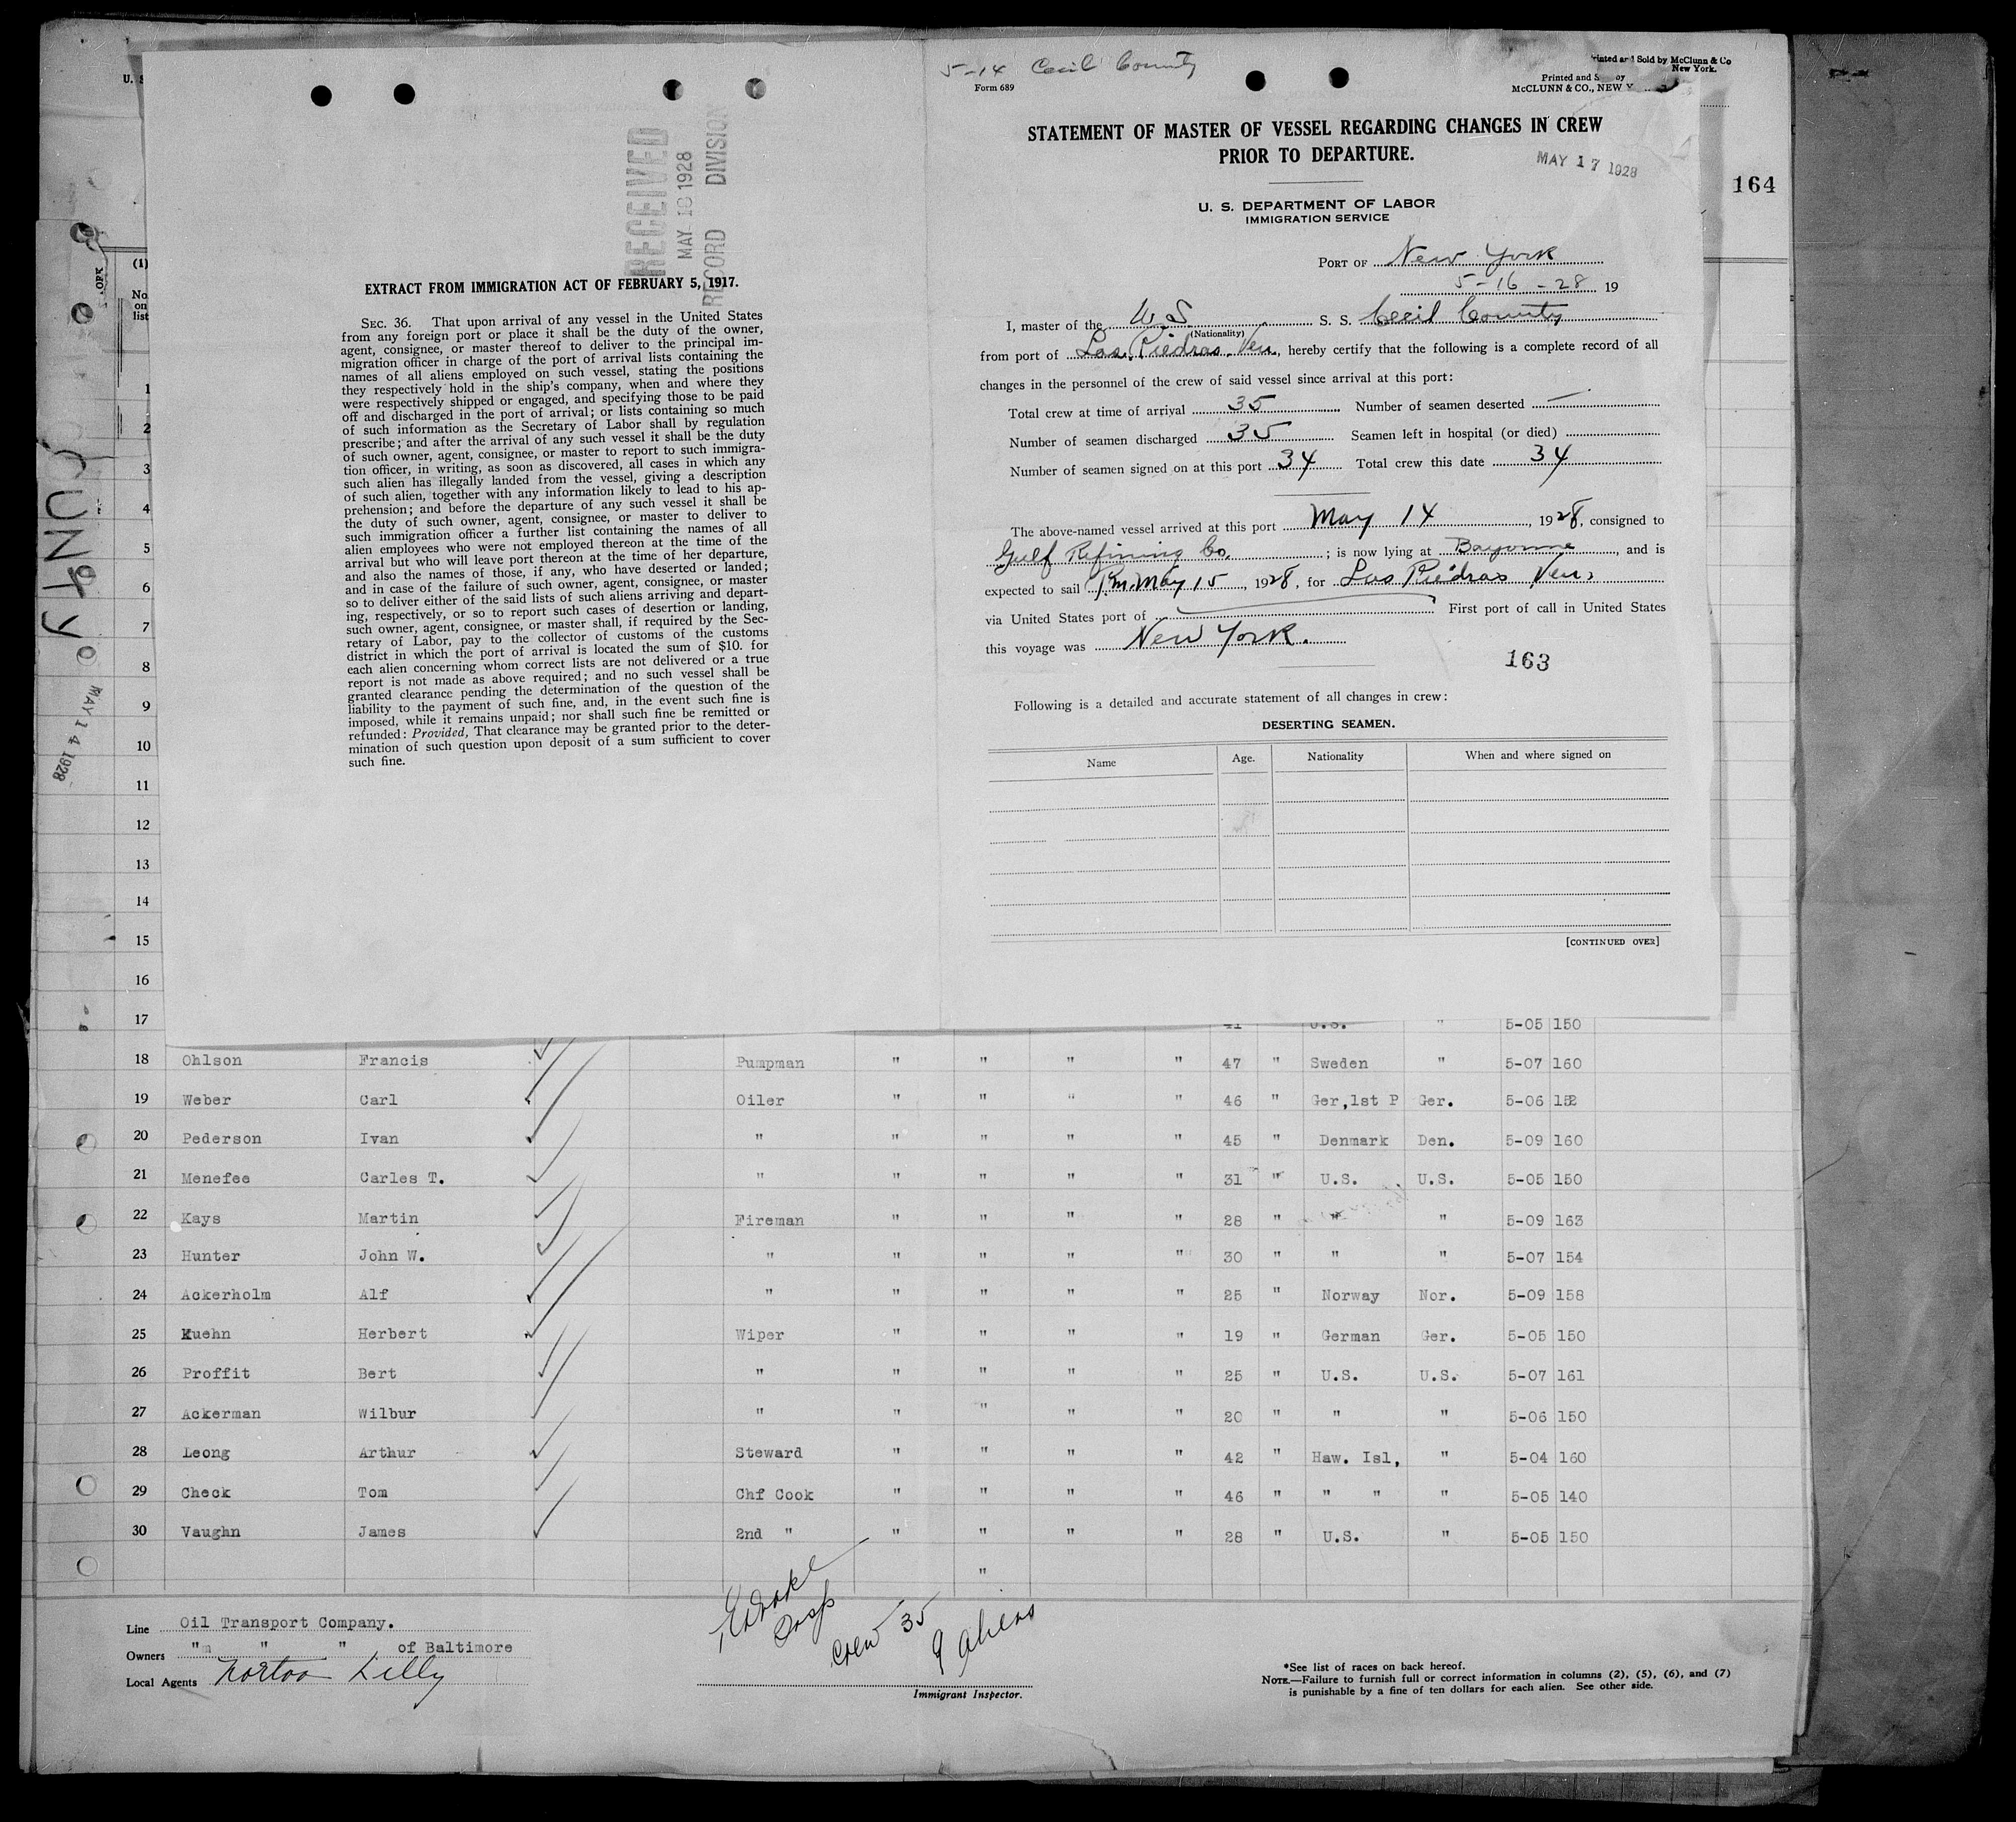 5-14 Cecil County
Form 689
Printed and Sold by McClunn & Co
New York.
Printed and S oy
McCLUNN & CO., NEW Y
STATEMENT OF MASTER OF VESSEL REGARDING CHANGES IN CREW
PRIOR TO DEPARTURE.
MAY 17 1928
164
U. S. DEPARTMENT OF LABOR
IMMIGRATION SERVICE
PORT OF New York
5-16-28 19
I, master of the U.S. S. S. Cecil County
(Nationality)
from port of Las Piedras Ven, hereby certify that the following is a complete record of all
changes in the personnel of the crew of said vessel since arrival at this port:
Total crew at time of arrival 35 Number of seamen deserted —
Number of seamen discharged 35 Seamen left in hospital (or died)
Number of seamen signed on at this port 34 Total crew this date 34
The above-named vessel arrived at this port May 14, 1928, consigned to
Gulf Refining Co. ; is now lying at Bayonne, and is
expected to sail P.m. May 15, 1928, for Las Piedras Ven.
via United States port of First port of call in United States
this voyage was New York.
163
Following is a detailed and accurate statement of all changes in crew:
DESERTING SEAMEN.
Name Age. Nationality When and where signed on
[CONTINUED OVER]
RECEIVED
MAY 18 1928
RECORD DIVISION
EXTRACT FROM IMMIGRATION ACT OF FEBRUARY 5, 1917.
SEC. 36. That upon arrival of any vessel in the United States
from any foreign port or place it shall be the duty of the owner,
agent, consignee, or master thereof to deliver to the principal im-
migration officer in charge of the port of arrival lists containing the
names of all aliens employed on such vessel, stating the positions
they respectively hold in the ship's company, when and where they
were respectively shipped or engaged, and specifying those to be paid
off and discharged in the port of arrival; or lists containing so much
of such information as the Secretary of Labor shall by regulation
prescribe; and after the arrival of any such vessel it shall be the duty
of such owner, agent, consignee, or master to report to such immigra-
tion officer, in writing, as soon as discovered, all cases in which any
such alien has illegally landed from the vessel, giving a description
of such alien, together with any information likely to lead to his ap-
prehension; and before the departure of any such vessel it shall be
the duty of such owner, agent, consignee, or master to deliver to
such immigration officer a further list containing the names of all
alien employees who were not employed thereon at the time of the
arrival but who will leave port thereon at the time of her departure,
and also the names of those, if any, who have deserted or landed;
and in case of the failure of such owner, agent, consignee, or master
so to deliver either of the said lists of such aliens arriving and depart-
ing, respectively, or so to report such cases of desertion or landing,
such owner, agent, consignee, or master shall, if required by the Sec-
retary of Labor, pay to the collector of customs of the customs
district in which the port of arrival is located the sum of $10. for
each alien concerning whom correct lists are not delivered or a true
report is not made as above required; and no such vessel shall be
granted clearance pending the determination of the question of the
liability to the payment of such fine, and, in the event such fine is
imposed, while it remains unpaid; nor shall such fine be remitted or
refunded: Provided, That clearance may be granted prior to the deter-
mination of such question upon deposit of a sum sufficient to cover
such fine.
U. S
(1)
No
on
list
OUNTY
MAY 14 1928
1
2
3
4
5
6
7
8
9
10
11
12
13
14
15
16
17 41 U.S. " 5-05 150
18 Ohlson Francis Pumpman " " " " 47 " Sweden " 5-07 160
19 Weber Carl Oiler " " " " 46 " Ger,1st P Ger. 5-06 152
20 Pederson Ivan " " " " " 45 " Denmark Den. 5-09 160
21 Menefee Carles T. " " " " " 31 " U.S. U.S. 5-05 150
22 Kays Martin Fireman " " " " 28 " " " 5-09 163
23 Hunter John W. " " " " " 30 " " " 5-07 154
24 Ackerholm Alf " " " " " 25 " Norway Nor. 5-09 158
25 Kuehn Herbert Wiper " " " " 19 " German Ger. 5-05 150
26 Proffit Bert " " " " " 25 " U.S. U.S. 5-07 161
27 Ackerman Wilbur " " " " " 20 " " " 5-06 150
28 Leong Arthur Steward " " " " 42 " Haw. Isl, " 5-04 160
29 Check Tom Chf Cook " " " " 46 " " " " 5-05 140
30 Vaughn James 2nd " " " " " 28 " U.S. " 5-05 150
"
Crew 35
9 aliens
Line Oil Transport Company.
Owners "m " " of Baltimore
Local Agents Norton Lilly
Immigrant Inspector.
*See list of races on back hereof.
NOTE.—Failure to furnish full or correct information in columns (2), (5), (6), and (7)
is punishable by a fine of ten dollars for each alien. See other side.